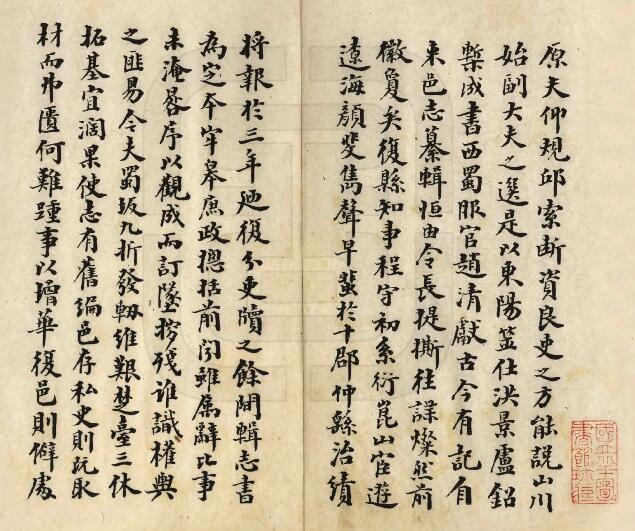 原夫仰規邱索断資良史之方能說山川
始副大夫之選是以東陽筮仕洪景盧鉛
槧成書西蜀服官趙清獻古今有記自
来邑志纂輯恒由令長提撕往諜燦然前
徽夐矣復縣知事程守初系衍崑山宦遊
遼海顏斐雋聲早蜚於十郡仲繇治績
将報於三年廼復分吏牘之餘閒輯志書
為定本牢皋庶政揔括前聞雖屬辭比事
未淹晷序以觀成而訂墜殘誰識權輿
之匪易今夫蜀坂九折發軔維艱楚臺三休
拓基宜濶果使志有舊編邑存私史則既取
材而弗匱何難踵事以增華復邑則僻處
國立北平圖
書館珍藏